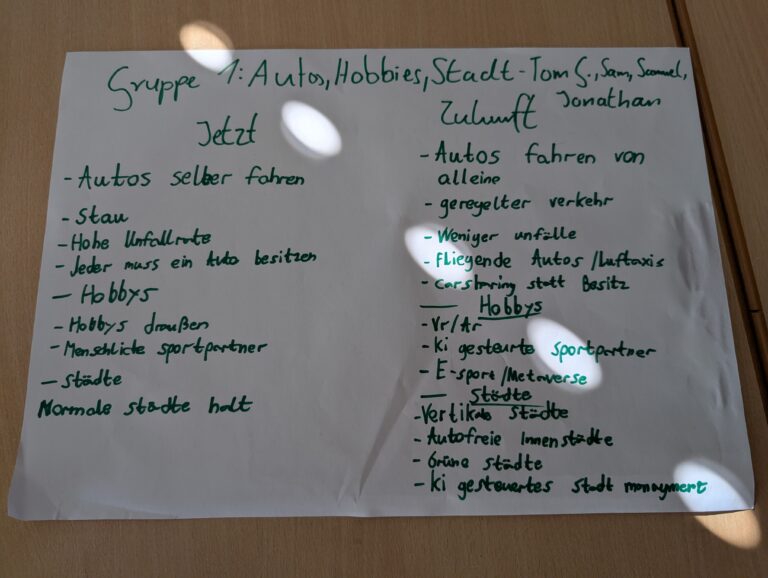 Gruppe 1: Autos, Hobbies, Stadt - Tom G., Sam, Samuel,
Jonathan
Jetzt
- Autos selber fahren
- Stau
- Hohe Unfallrate
- Jeder muss ein Auto besitzen
- Hobbys
- Hobbys draußen
- Menschliche sportpartner
- Städte
Normale städte halt
Zukunft
- Autos fahren von
alleine
- geregelter verkehr
- Weniger unfälle
- Fliegende Autos /Luftaxis
- carsharing statt Besitz
- Hobbys
- Vr/Ar
- Ki gesteurte sportpartner
- E-sport/Metaverse
- Städte
- Vertikale städte
- Autofreie Innenstädte
- Grüne städte
- Ki gesteuertes stadt